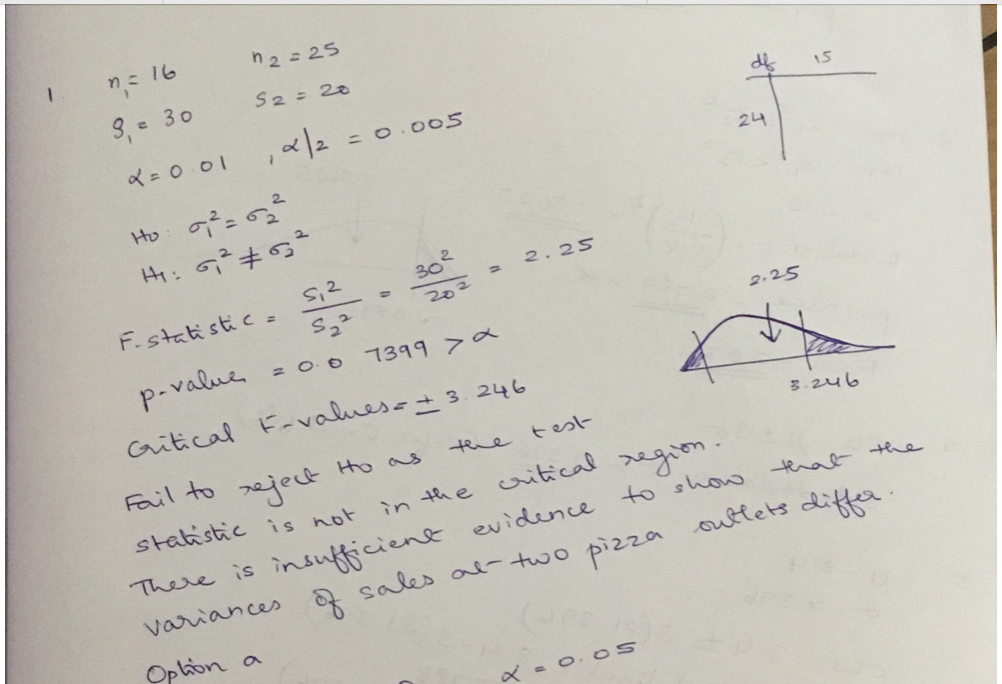 1. n₁ = 16 n₂ = 25
S₁ = 30 S₂ = 20
α = 0.01 , α/2 = 0.005
df 15
24
H₀: σ₁² = σ₂²
H₁: σ₁² ≠ σ₂²
F-statistic = S₁²/S₂² = 30²/20² = 2.25
p-value = 0.07399 > α
2.25
3.246
Critical F-values = ± 3.246
Fail to reject H₀ as the test
statistic is not in the critical region.
There is insufficient evidence to show that the
variances of sales at two pizza outlets differ.
Option a
α = 0.05